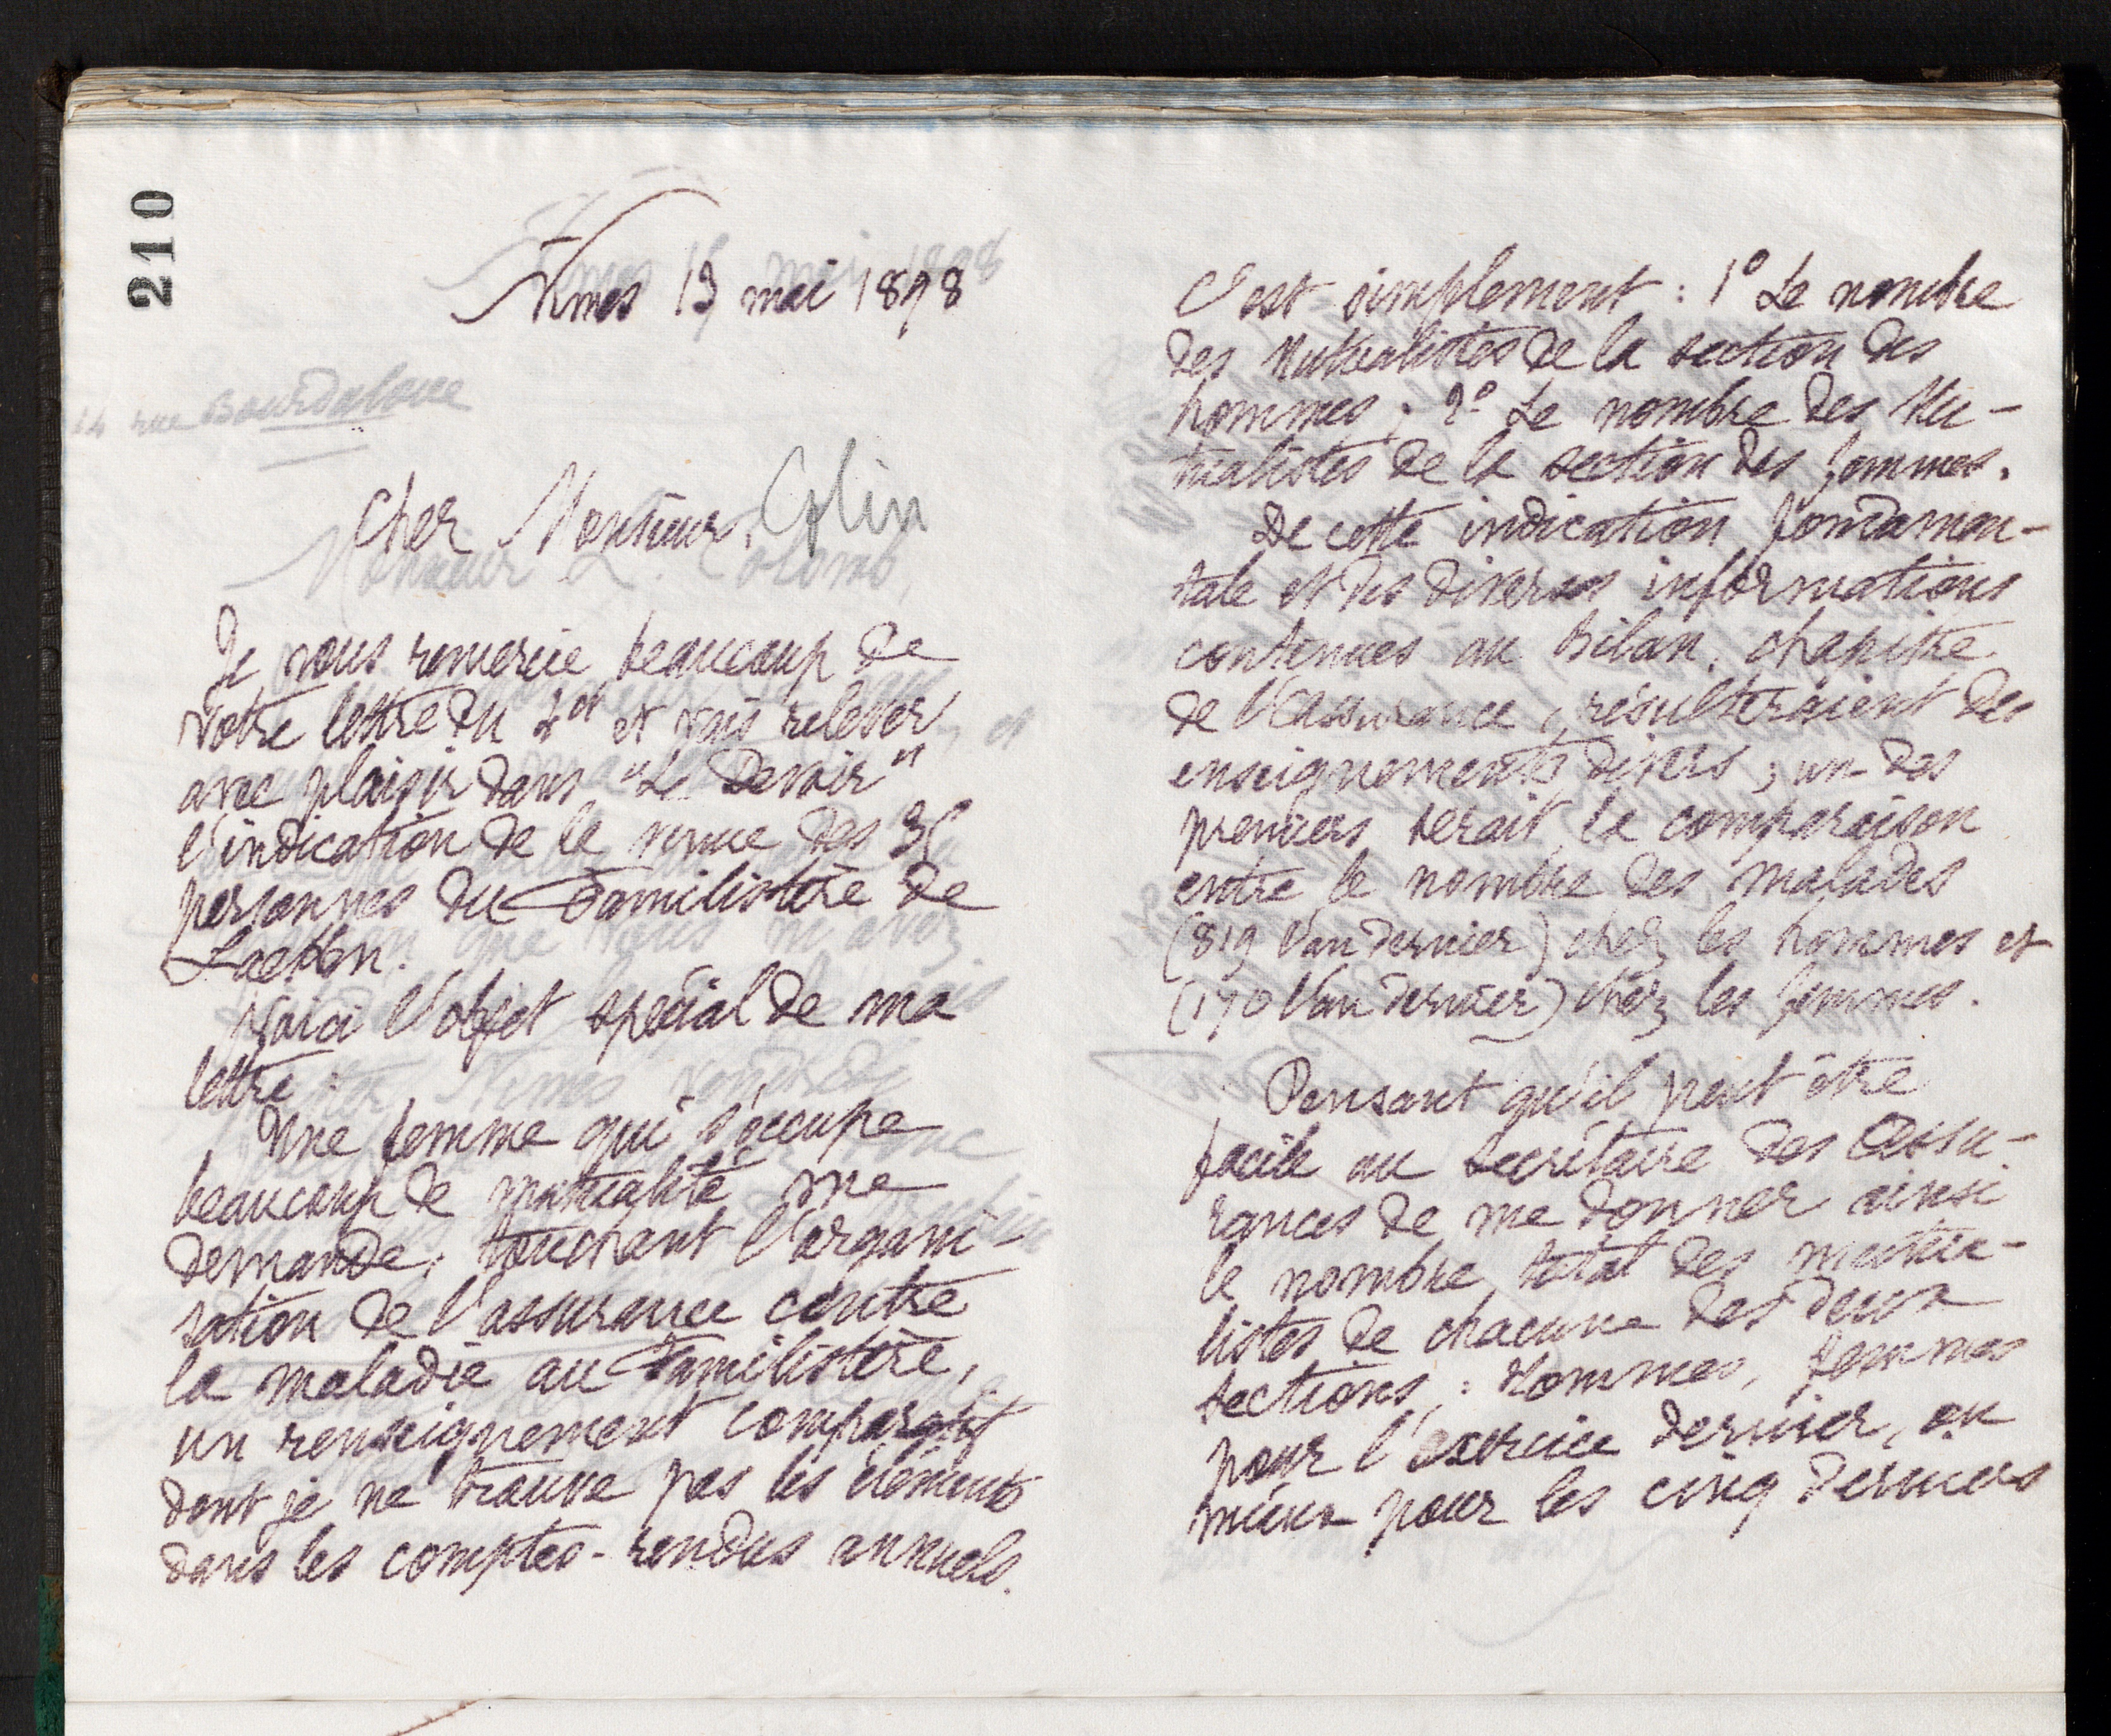 210
Nîmes 15 mai 1898
14 rue Bourdaloue
Cher Monsieur, Colin
Je vous remercie beaucoup de
votre lettre du et vais relever
avec plaisir dans "Le Devoir"
l'indication de la venue des 35
personnes du Familistère de
Laeken.
Voici l'objet spécial de ma
lettre :
Une femme qui s'occupe
beaucoup de mutualité me
demande, touchant l'organi-
sation de l'assurance contre
la maladie au Familistère,
un renseignement comparatif
dont je ne trouve pas les éléments
dans les comptes-rendus annuels.
C'est simplement : 1° Le nombre
des Mutualistes de la section des
hommes ; 2° Le nombre des Mu-
tualistes de la section des femmes.
De cette indication fondamen-
tale et des diverses informations
contenues au Bilan, chapitre
de l'Assurance, résulteraient des
enseignements divers ; un des
premiers serait la comparaison
entre le nombre des malades
(819 l'an dernier) chez les hommes et
(170 l'an dernier) chez les femmes.
Pensant qu'il peut être
facile au secrétaire des Assu-
rances de me donner ainsi
le nombre total des mutua-
listes de chacune des deux
sections : Hommes, femmes
pour l'exercice dernier, ou
mieux pour les cinq derniers